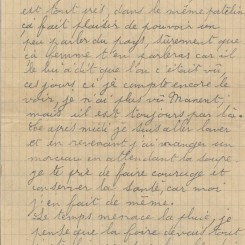 est tout prés, dans le même patelin
ça fait plaisir de pouvoir un
peu parler du pays, sûrement que
sa femme t'en parleras car il
le lui a dit que l'on c'était vu,
ces jours ci je compte encore le
voir, je n'ai plus vu
mais il est toujours par là.
Cet après midi je suis aller laver
et en revenant j'ai manger un
morceau en attendant la soupe.
je te prie de faire courage et
conserver la santé, car moi
j'en fait de même.
Le temps menace la pluie, je
pense que la foire devais